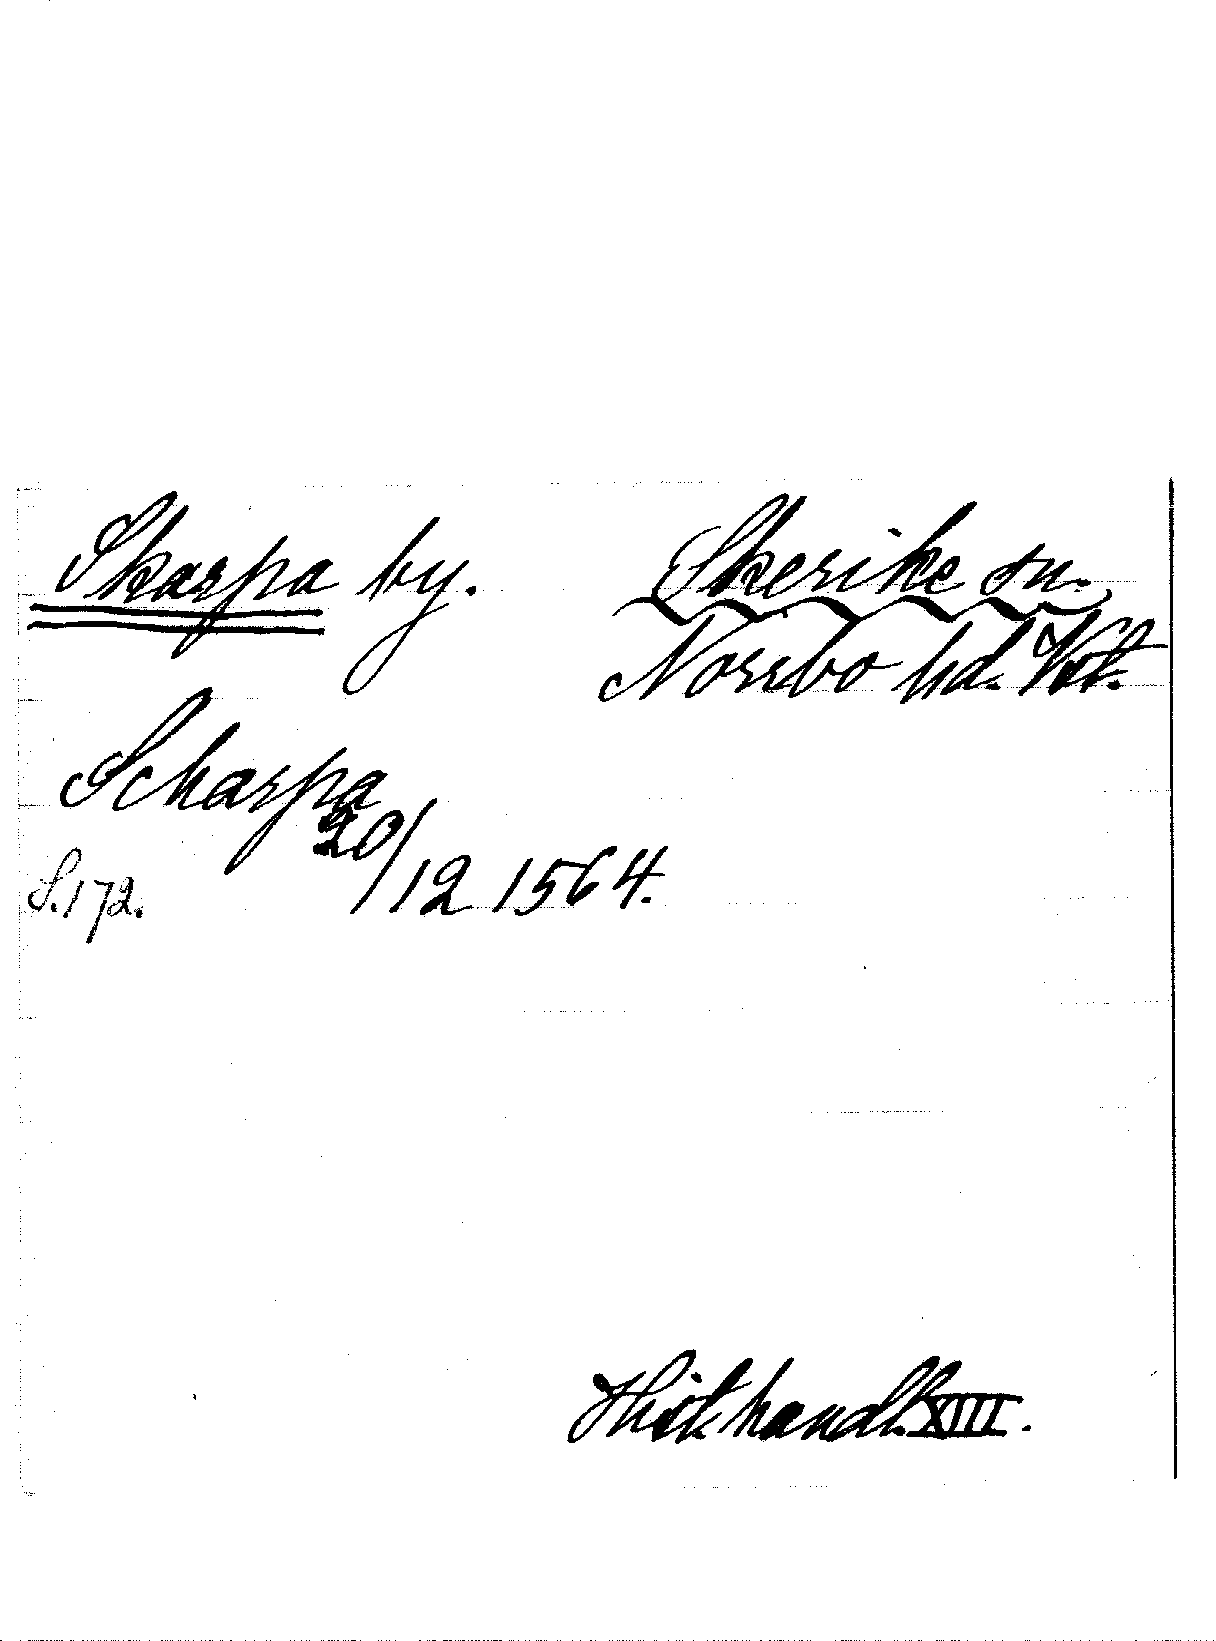 Skarpa by. Skerike sn.
Norrbo hd. Vstm.
Scharpa
20/12 1564.
S. 172.
Hist. handl. XIII.